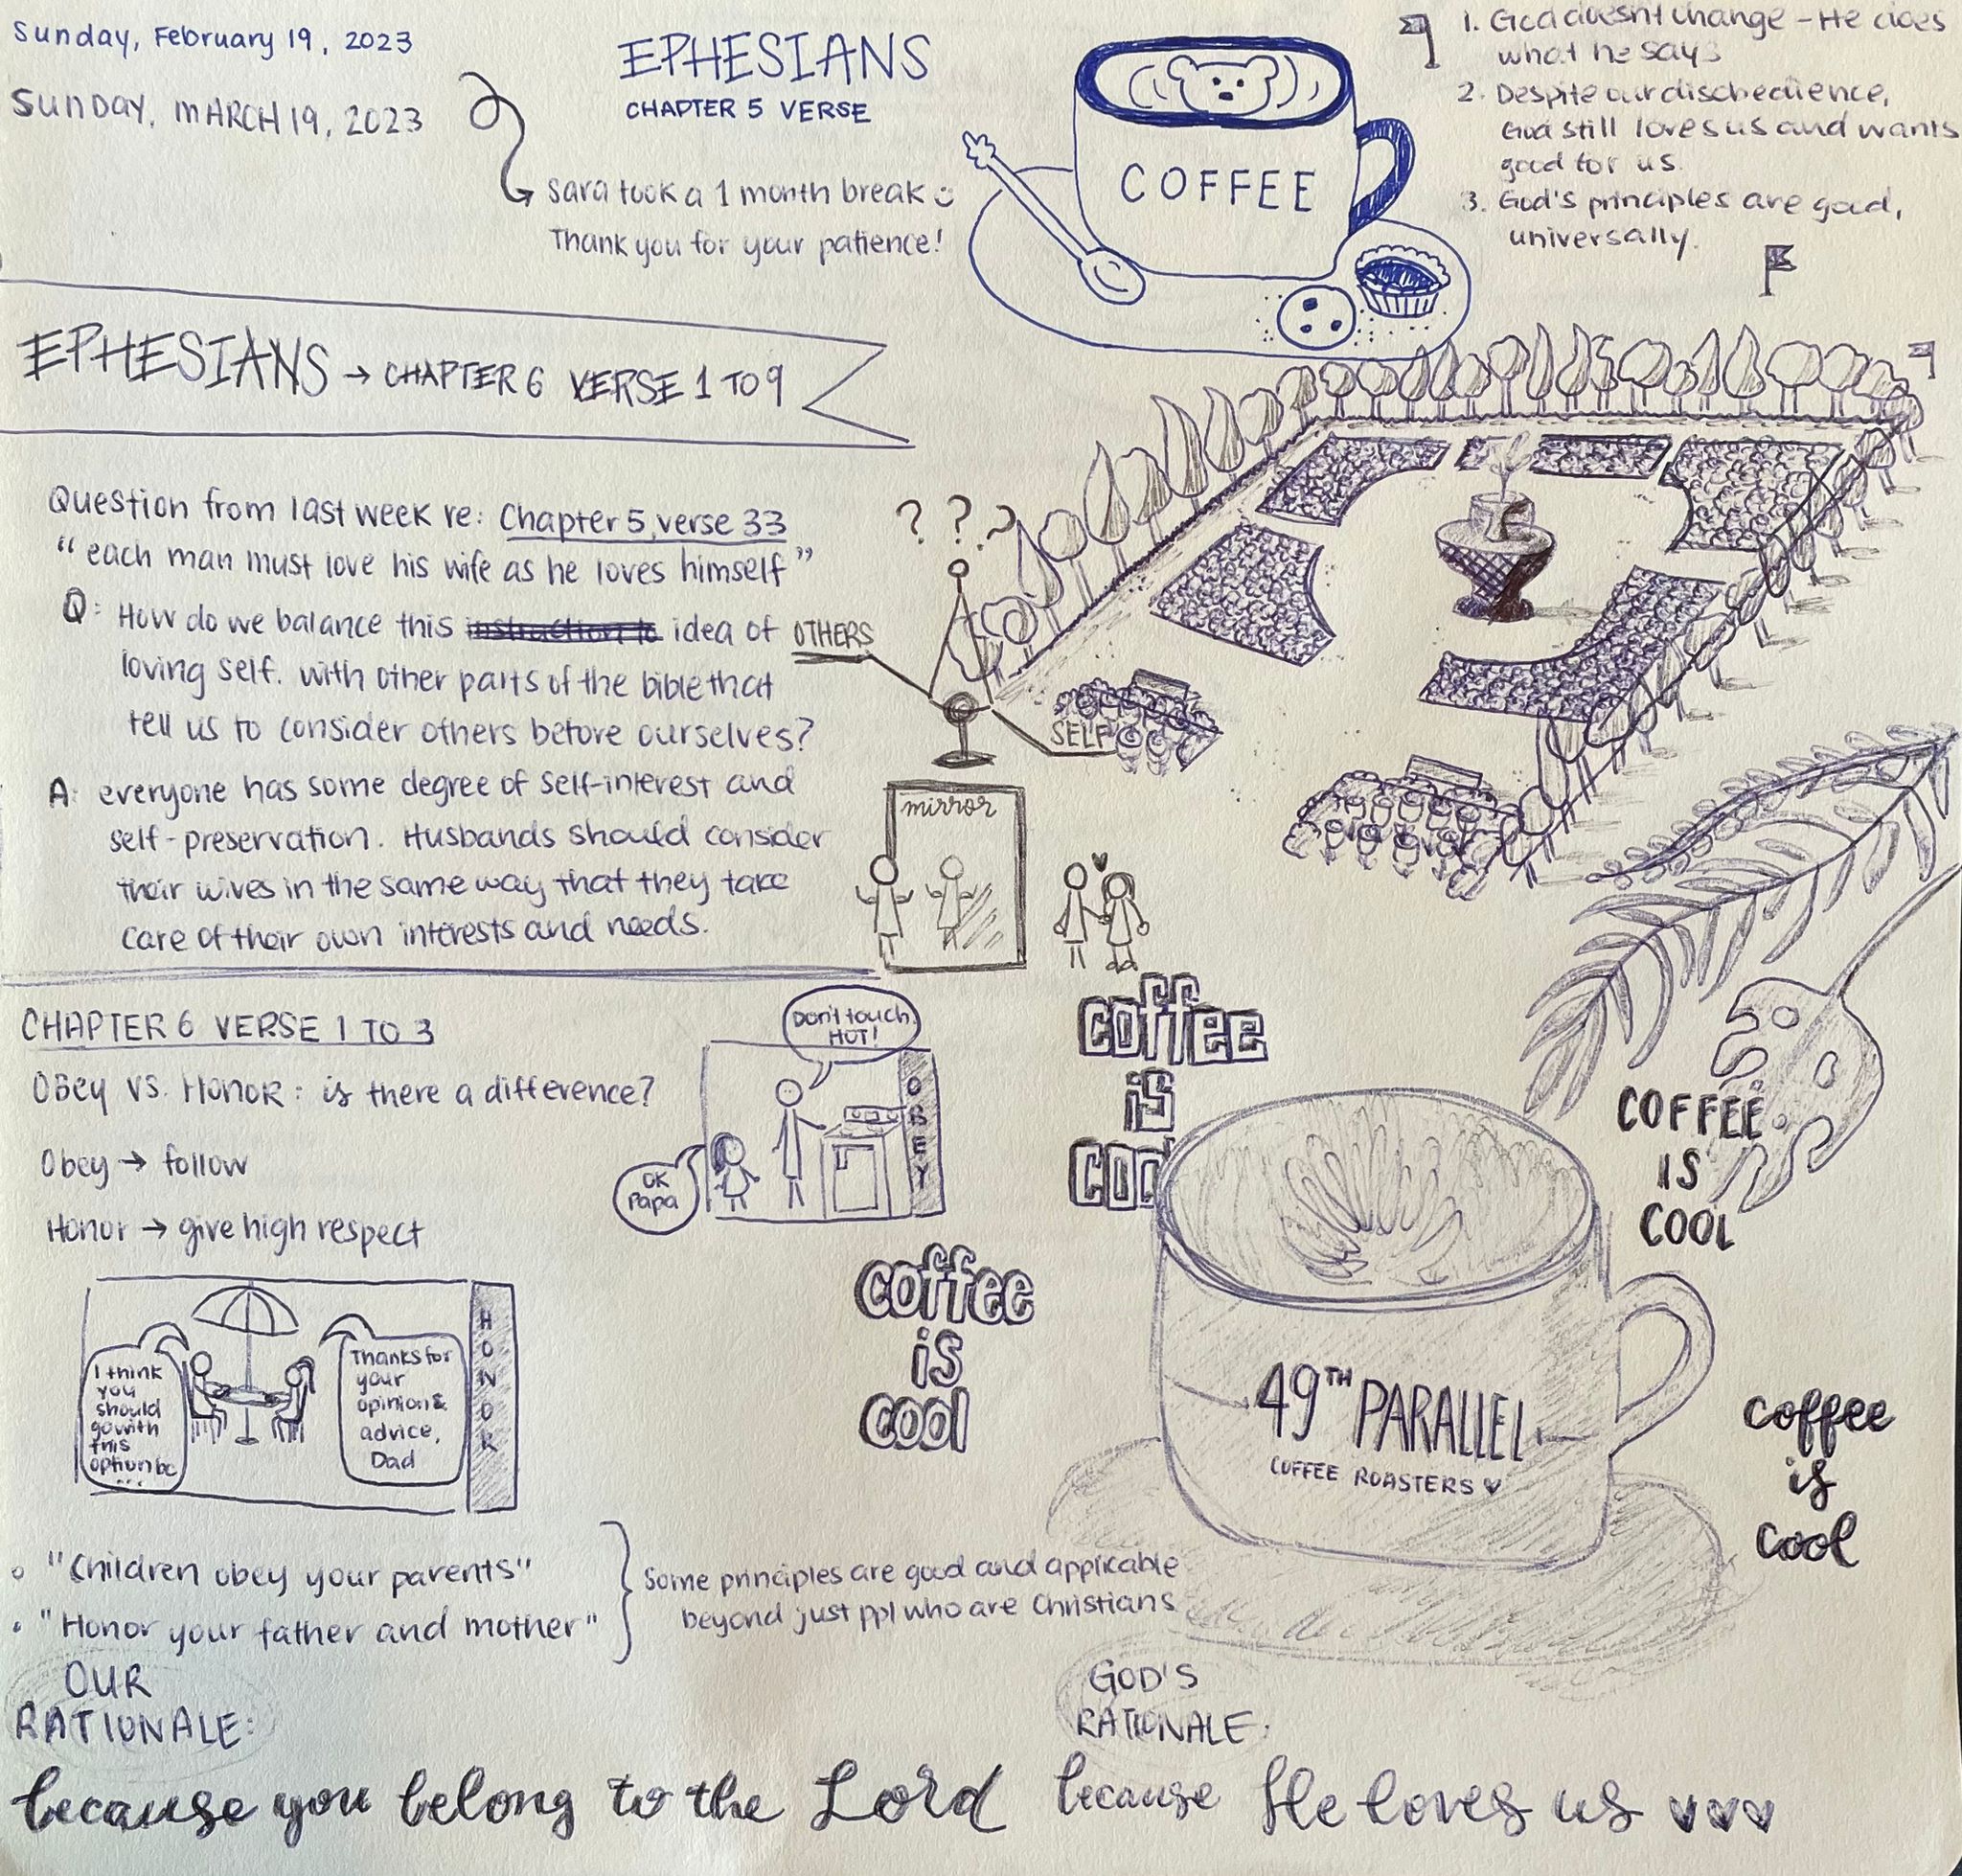 Sunday, February 19, 2023
SUNDAY, MARCH 19, 2023
EPHESIANS
CHAPTER 5 VERSE
Sara took a 1 month break
Thank you for your patience!
COFFEE
1. God doesn't change - He does
what he says
2. Despite our disobedience,
God still loves us and wants
good for us.
3. God's principles are good,
universally.
EPHESIANS → CHAPTER 6 VERSE 1 TO 9
Question from last week re: Chapter 5, verse 33
"each man must love his wife as he loves himself"
Q: How do we balance this instruction to idea of
loving self. with other parts of the bible that
tell us to consider others before ourselves?
A: everyone has some degree of self-interest and
self-preservation. Husbands should consider
their wives in the same way that they take
care of their own interests and needs.
? ? ?
OTHERS
SELF
mirror
CHAPTER 6 VERSE 1 TO 3
Obey vs. Honor: is there a difference?
Obey → follow
Honor → give high respect
Don't touch.
HOT!
OK
Papa
OBEY
I think
you
should
go with
this
option bc
...
Thanks for
your
opinion &
advice,
Dad
HONOR
coffee
is
coo
COFFEE
IS
COOL
coffee
is
cool
49TH PARALLEL
COFFEE ROASTERS
coffee
is
cool
"Children obey your parents"
"Honor your father and mother"
Some principles are good and applicable
beyond just ppl who are Christians
OUR
RATIONALE:
because you belong to the Lord
GOD'S
RATIONALE:
because He loves us